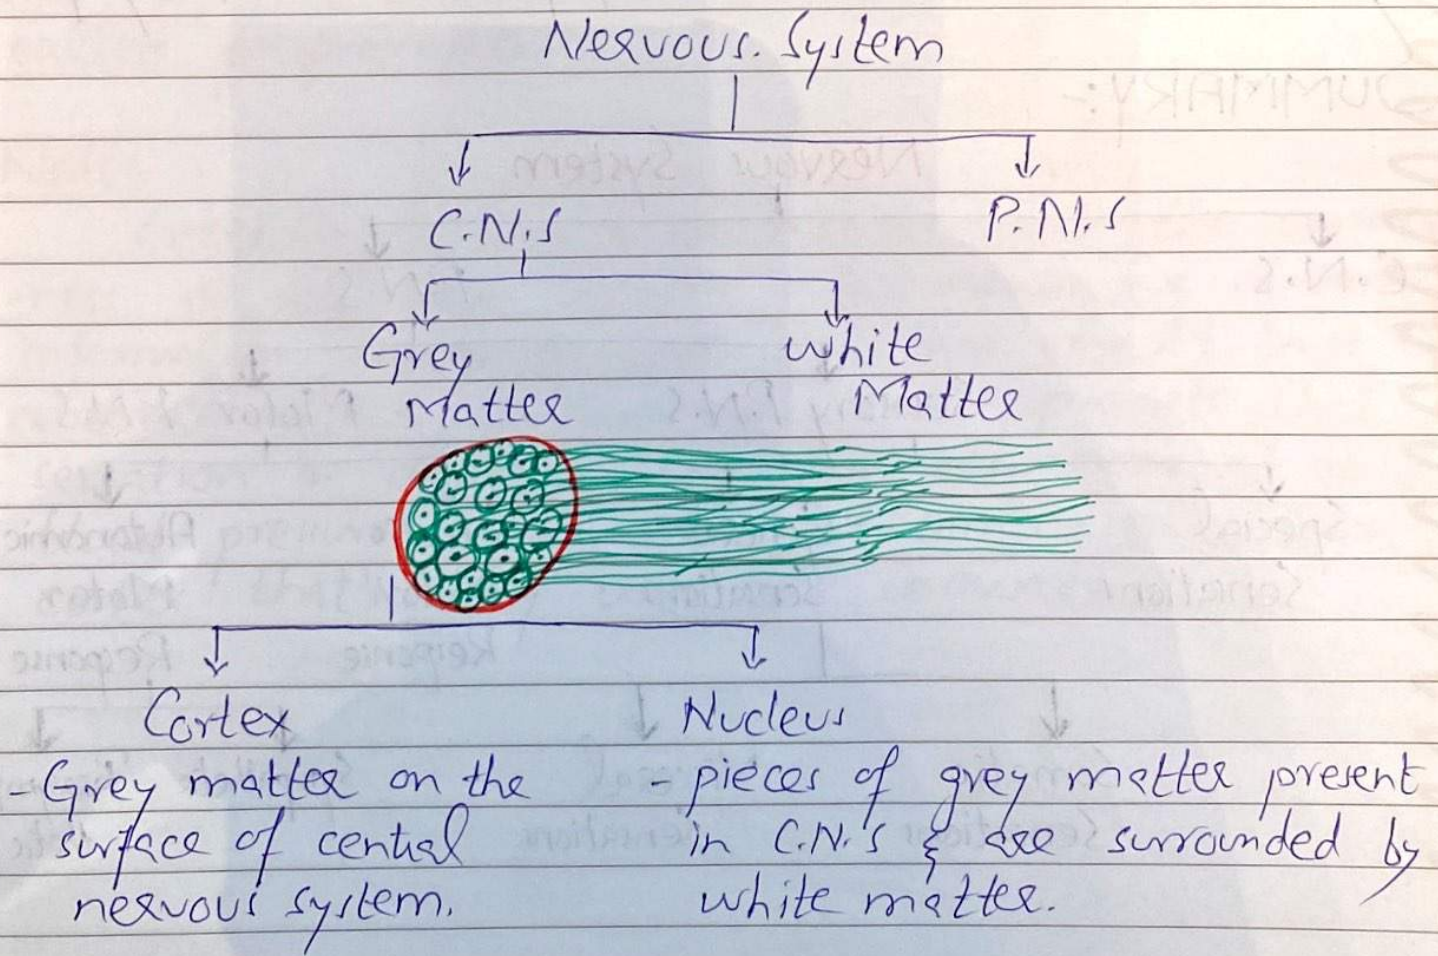 Nervous. System
C.N.S
P.N.S
Grey
Matter
white
Matter
Cortex
- Grey matter on the
surface of central
nervous system.
Nucleus
- pieces of grey matter present
in C.N.S & are surrounded by
white matter.